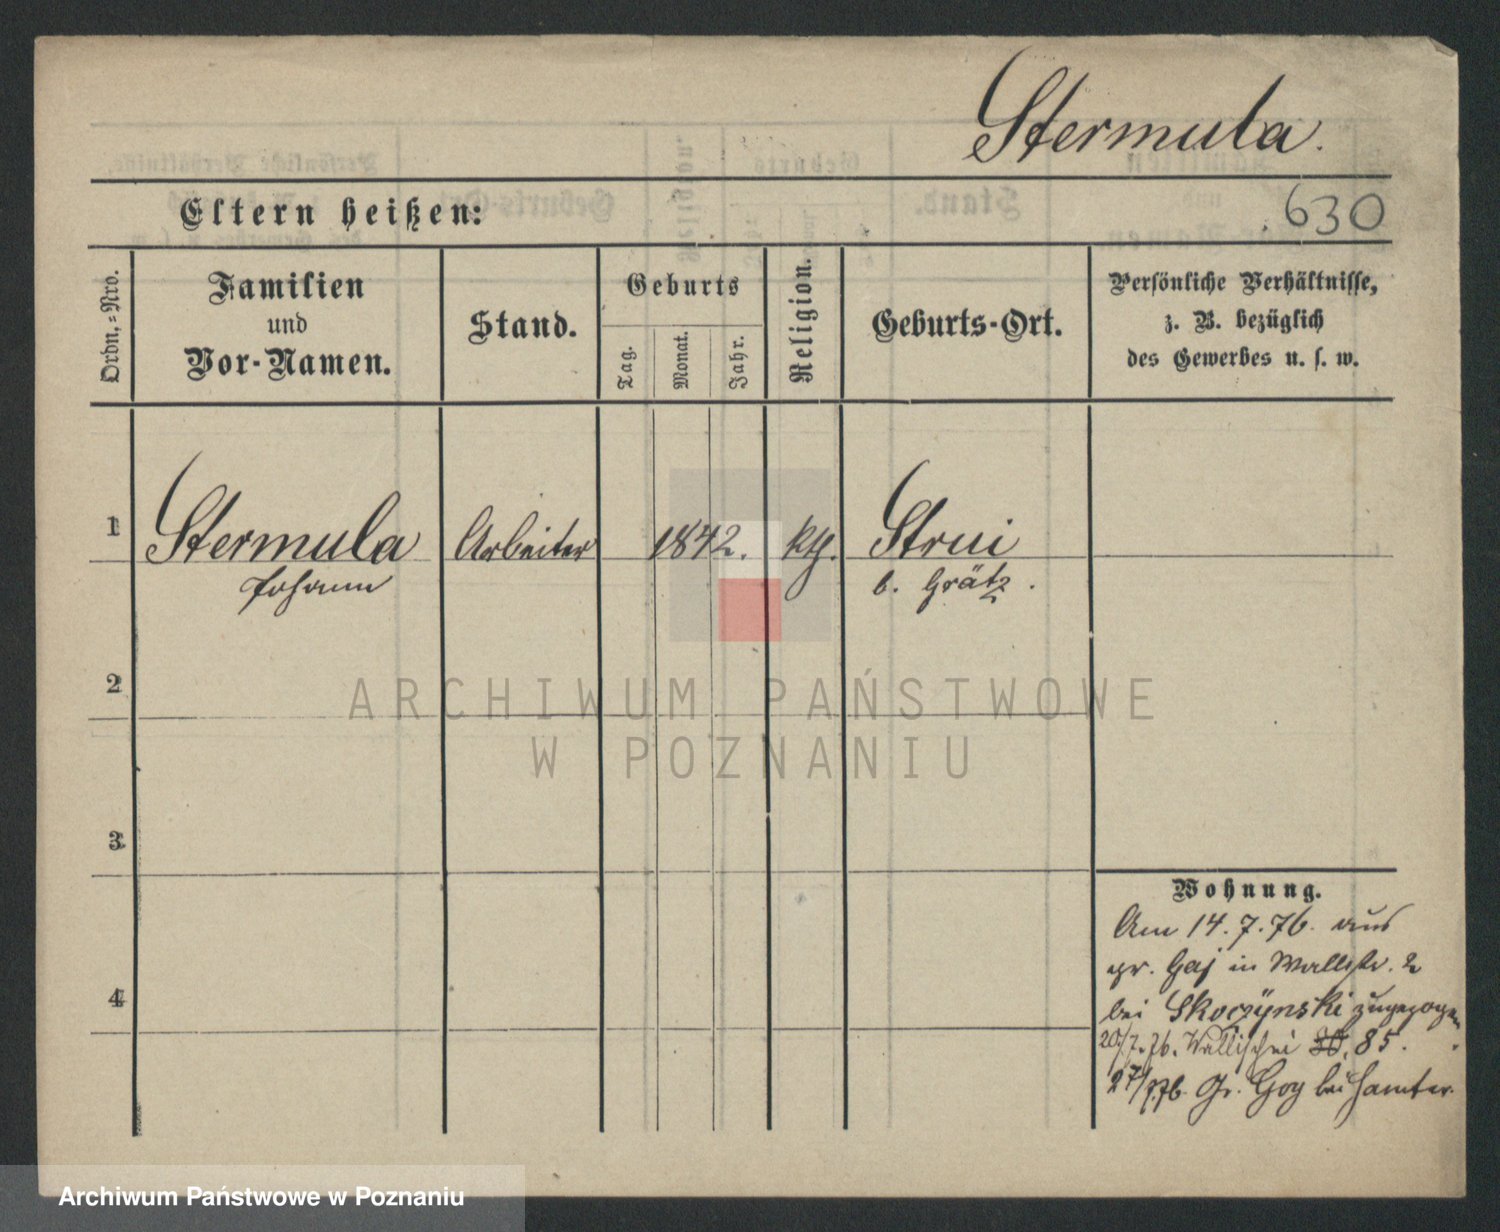 Stermula.
Eltern heißen:
630
Ordn.-Nro.
Familien
und
Vor-Namen.
Stand.
Geburts
Tag.
Monat.
Jahr.
Religion.
Geburts-Ort.
Persönliche Verhältnisse,
z. B. bezüglich
des Gewerbes u. s. w.
1 Stermula Arbeiter 1842. kth. Strui
Johann b. Grätz.
2
ARCHIWUM PAŃSTWOWE
W POZNANIU
3
Wohnung.
Am 14.7.76. aus
gr. Gaj in Wallstr. 2
bei Skoczÿnski zugezogen
4
20/7.76. Wallischei 85.
27/7.76. Gr. Goy bei Samter.
Archiwum Państwowe w Poznaniu